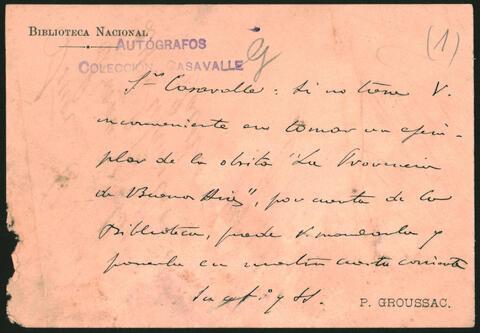 BIBLIOTECA NACIONAL
AUTÓGRAFOS
COLECCIÓN CASAVALLE
(1)
Sr. Casavalle: Si no tiene V.
inconveniente en tomar un ejem-
plar de la obrita "La Provincia
de Buenos Aires", por cuenta de la
Biblioteca, puede V. mandarla y
ponerla en nuestra cuenta corriente
P. GROUSSAC.